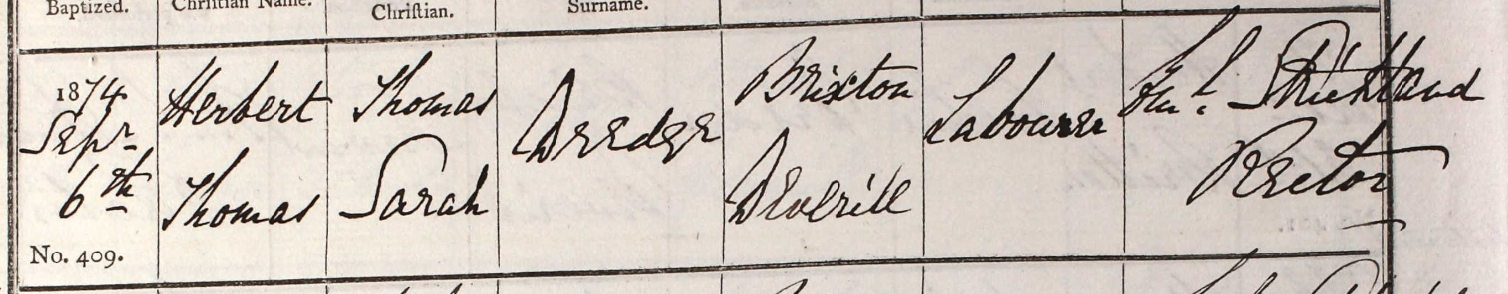 Baptized.
Christian Name.
Christian.
Surname.
1874
Sepr
6th
No. 409.
Herbert
Thomas
Thomas
Sarah
Dredge
Brixton
Deverill
Labourer
Strickland
Rector